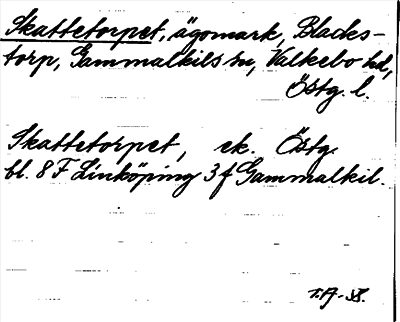 Skattetorpet, ägomark, Blacks-
torp, Gammalkils sn, Valkebo hd,
Östg. l.
Skattetorpet, ek. Östg.
bl. 8 F Linköping 3 f Gammalkil.